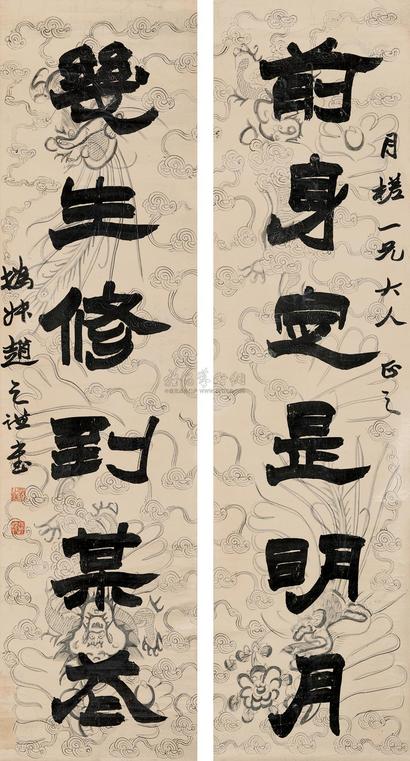 月槎一兄大人正之
前身㝎是明月
幾生修到某
撝叔趙之謙書